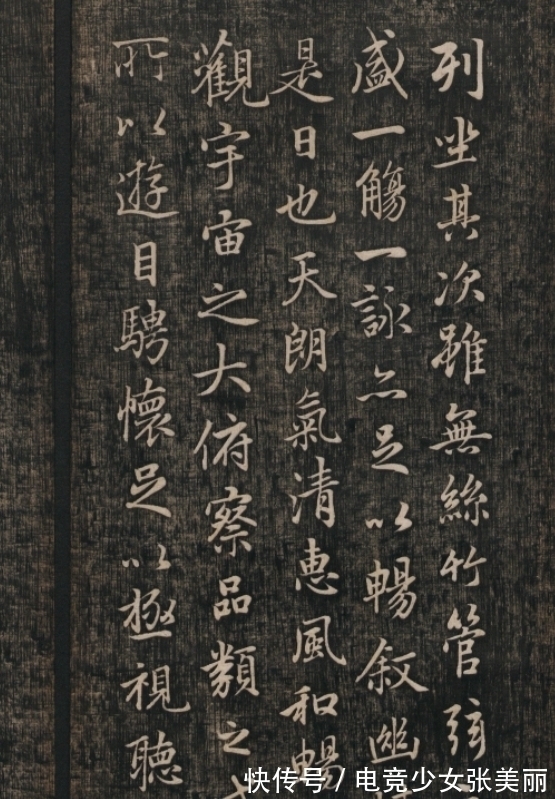 列坐其次雖無絲竹管弦
盛一觴一詠亦足以暢叙幽
是日也天朗氣清惠風和暢
觀宇宙之大俯察品類之
所以遊目騁懷足以極視聽
快传号 / 电竞少女张美丽